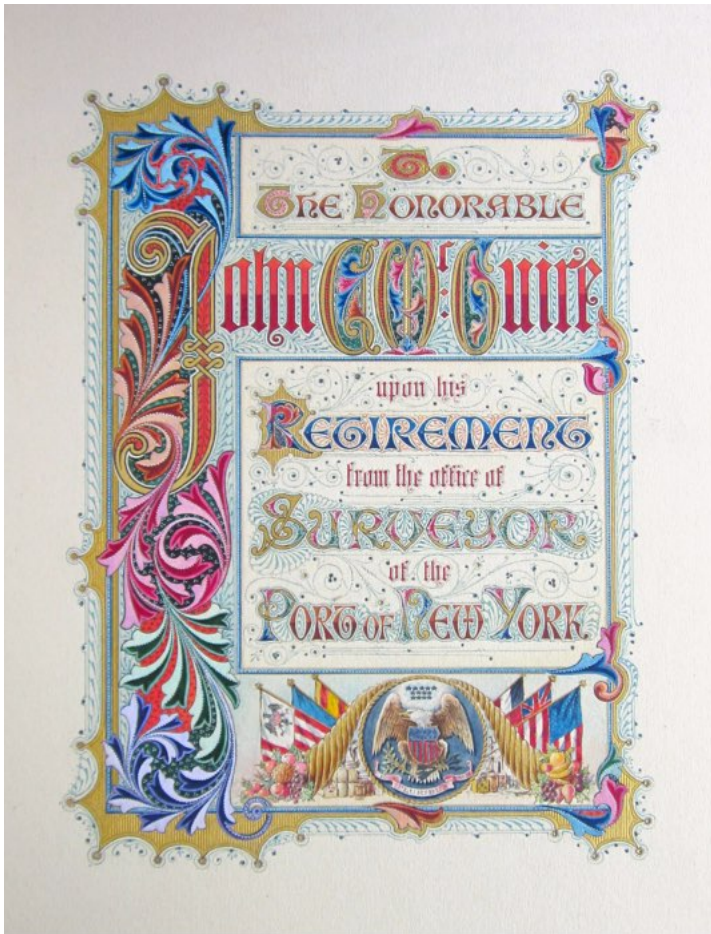 To
The Honorable
John C Mc: Guire
upon his
Retirement
from the office of
Surveyor
of the
Port of New York.